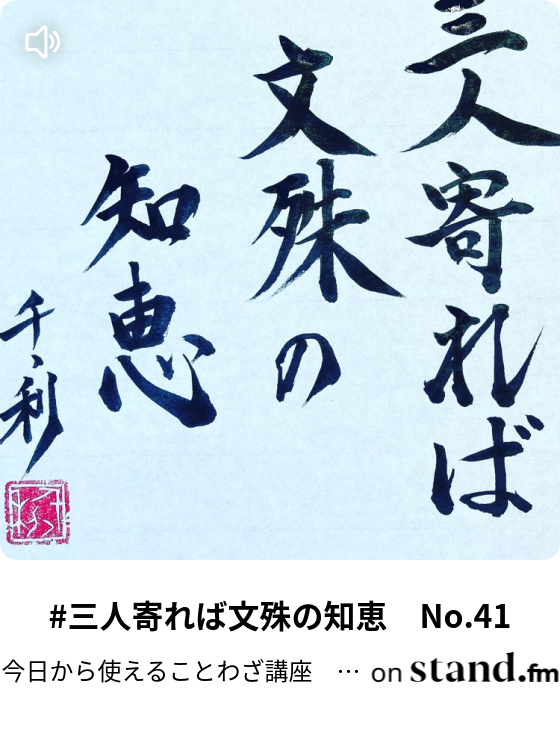 三人寄れば
文殊の
知恵
千、利
#三人寄れば文殊の知恵　No.41
今日から使えることわざ講座　… on stand.fm